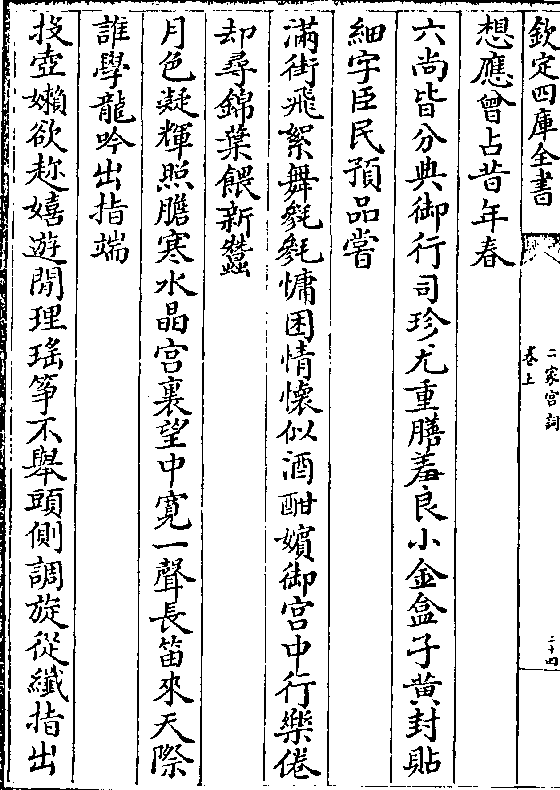 欽定四庫全書
二家宮詞
卷上
二十四
想應曾占昔年春
六尚皆分典御行司珍尤重膳羞良小金盒子黄封貼
細字臣民預品嘗
滿街飛絮舞毿毿慵困情懷似酒酣嬪御宫中行樂倦
却尋錦葉餵新蠶
月色凝輝照膽寒水晶宫裏望中寛一聲長笛來天際
誰學龍吟出指端
投壺嬾欲趂嬉遊閒理瑤筝不舉頭側調旋從纖指出